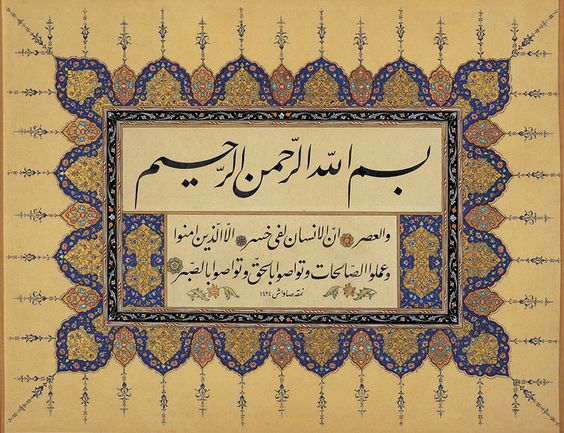 بسم الله الرّحمن الرّحیم
والعصر انّ الانسان لفی خسر الّا الّذین امنوا
وعملوا الصّالحات وتواصوا بالحق وتواصوا بالصّبر
۱۴۲۴